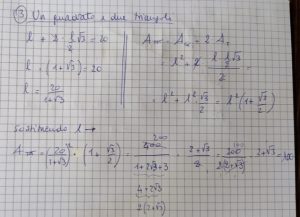 13) Un quadrato e due triangoli
l + 2 · l√3/2 = 20
l · (1+√3) = 20
l = 20/(1+√3)
A = A + 2 · A_T
= l² + 2 · (l · l√3/2)/2 =
= l² + l² √3/2 = l² (1 + √3/2)
Sostituendo l →
A = (20/(1+√3))² · (1 + √3/2) = 400/(1+2√3+3) · (2+√3)/2 = 200/(2(2+√3)) · 2+√3 = 100
4+2√3
2(2+√3)